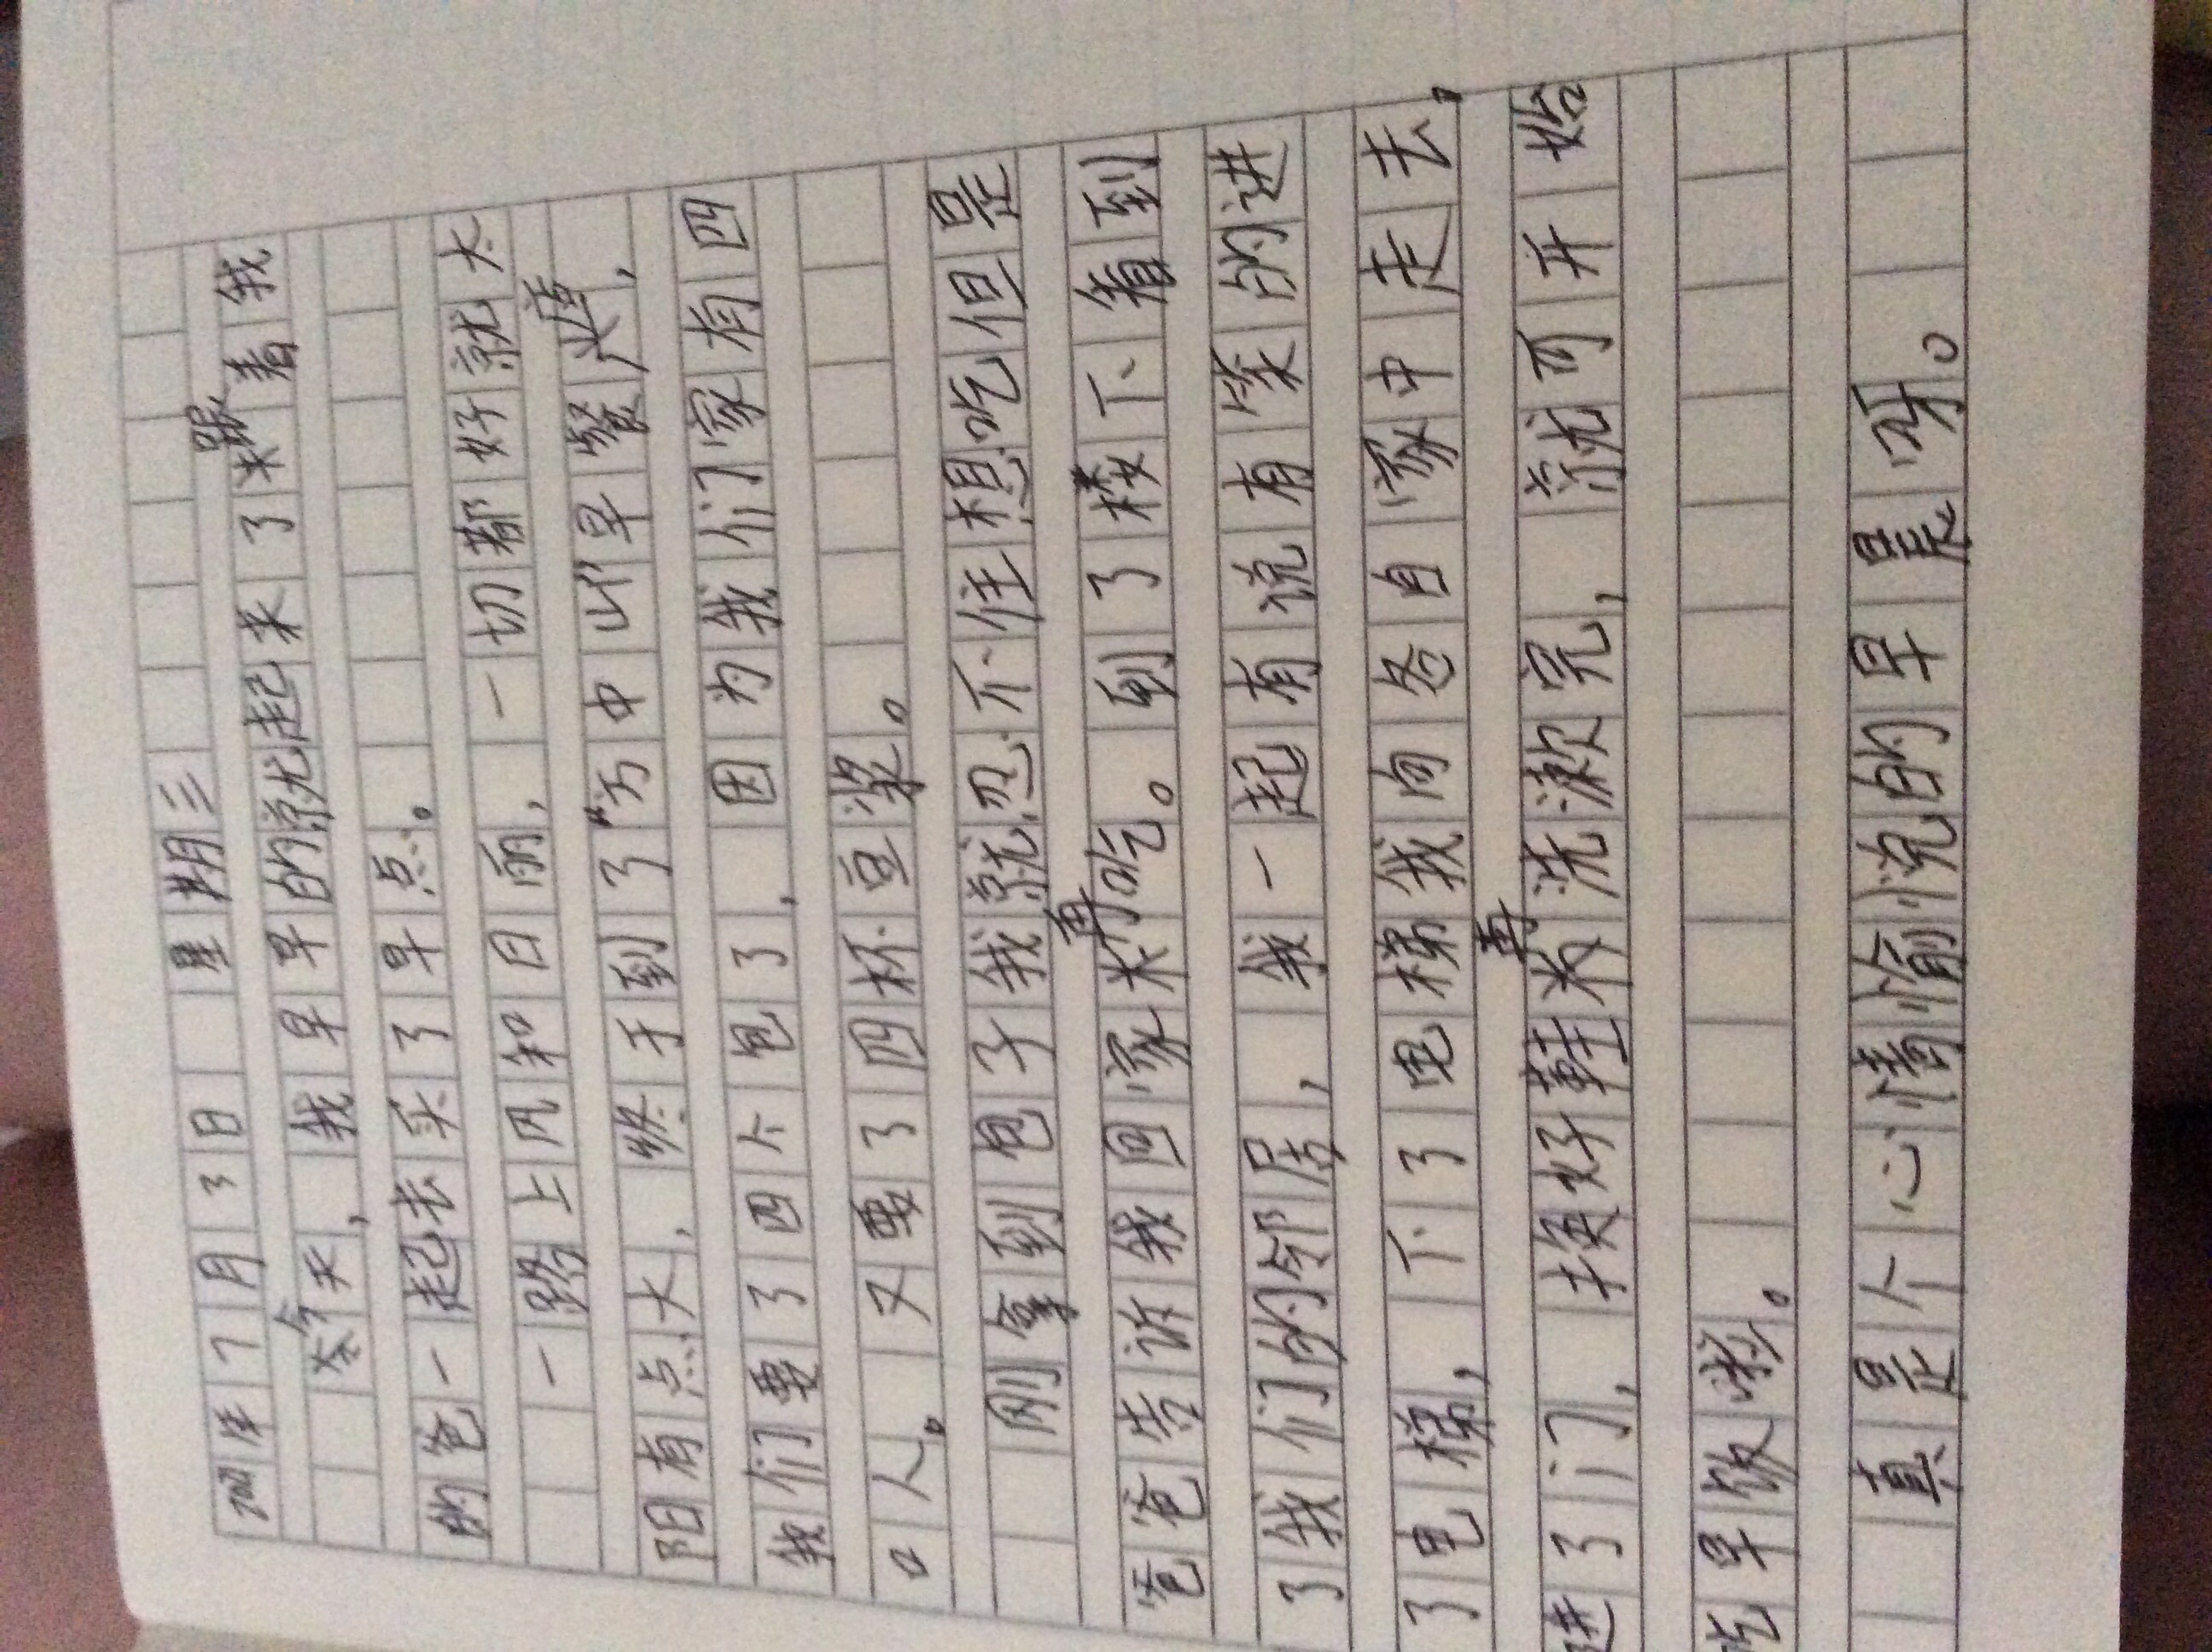 2021年7月3日 星期三
今天,我早早的就起来了跟着我
的爸一起去买了早点。
一路上风和日丽,一切都好就太
阳有点大,终于到了“方中山”早餐店,
我们要了四个包了,因为我们家有四
口人。又要了四杯豆浆。
刚拿到包子我就忍不住想吃但是
爸爸告诉我回家再吃。到了楼下看到
了我们的邻居,我一起有说有笑的进
了电梯,下了电梯我向各自家中走去,
进了门,换好鞋再洗漱完,就可开始
吃早饭啦。
真是个心情愉悦的早晨呀。